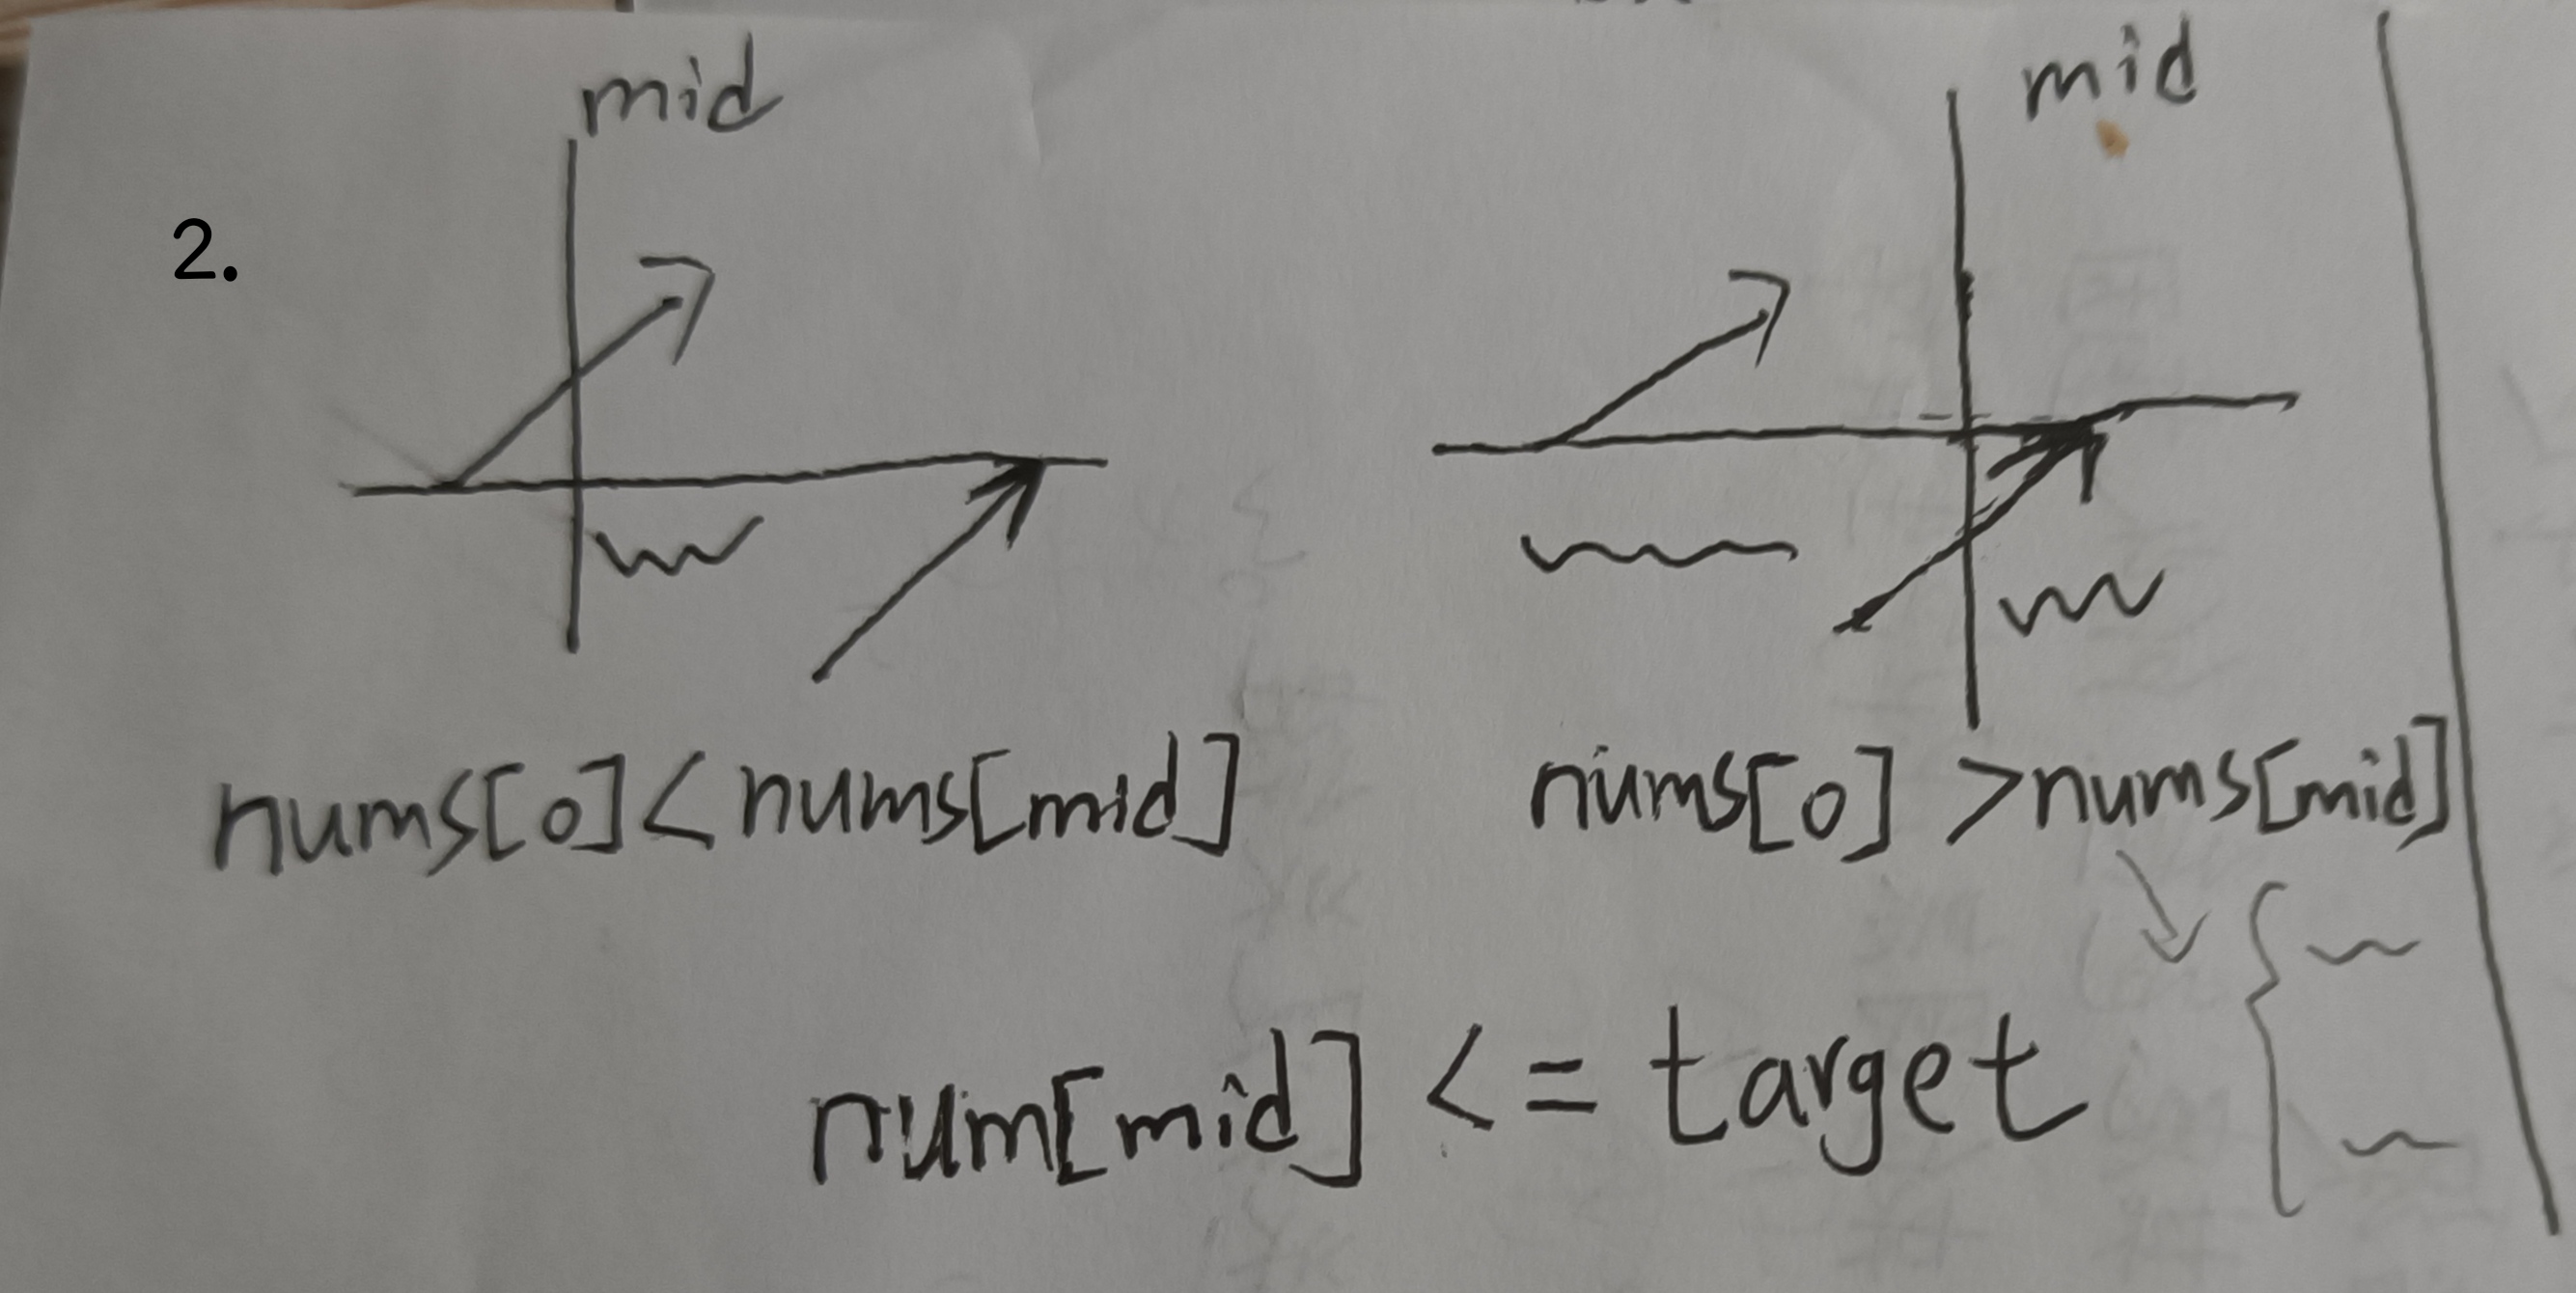 mid
mid
2.
nums[0]<nums[mid]
nums[0] >nums[mid]
num[mid] <= target